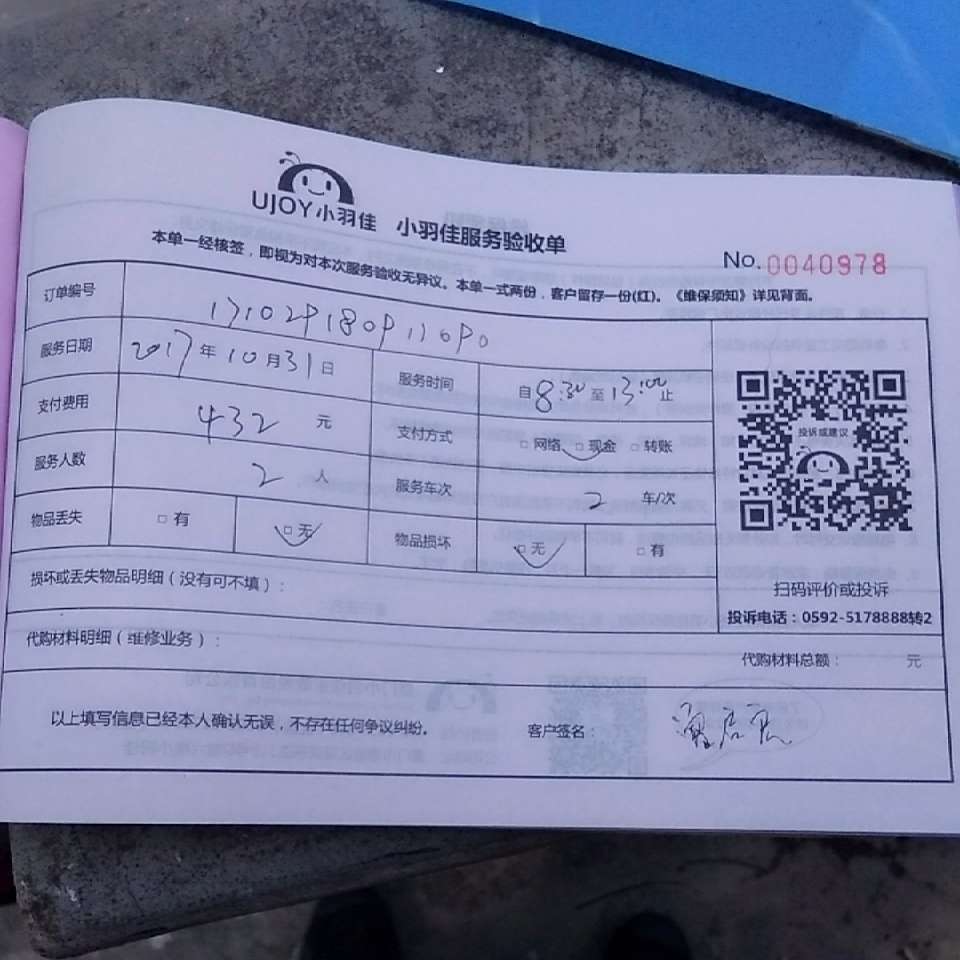 UJOY小羽佳 小羽佳服务验收单
No. 0040978
本单一经核签，即视为对本次服务验收无异议。本单一式两份，客户留存一份(红)。《维保须知》详见背面。
订单编号
服务日期 2017年10月31日 服务时间 自8:30至13:00止
支付费用 432 元 支付方式 □网络 □现金 □转账
服务人数 2 人 服务车次 2 车/次
物品丢失 □有 □无 物品损坏 □无 □有
投诉或建议
扫码评价或投诉
投诉电话：0592-5178888转2
损坏或丢失物品明细（没有可不填）：
代购材料明细（维修业务）：
代购材料总额： 元
以上填写信息已经本人确认无误，不存在任何争议纠纷。 客户签名：